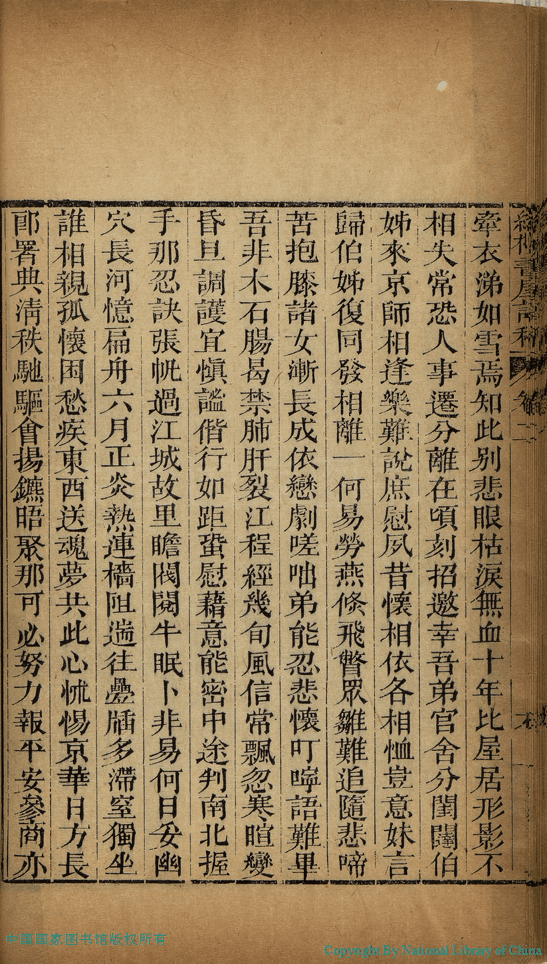 牽衣涕如雪焉知此別悲眼枯淚無血十年比屋居形影不
相失常恐人事遷分離在頃刻招邀幸吾弟官舍分閨闥伯
姊來京師相逢樂難說庶慰夙昔懷相依各相恤豈意妹言
歸伯姊復同發相離一何易勞燕倐飛瞥眾雛難追隨悲啼
苦抱膝諸女漸長成依戀劇嗟咄弟能忍悲懷叮嚀語難畢
吾非木石腸曷禁肺肝裂江程經幾旬風信常飄忽寒暄變
昏旦調護宜愼謐偕行如距蛩慰藉意能密中途判南北握
手那忍訣張帆過江城故里瞻閥閱牛眠卜非易何日妥幽
穴長河憶扁舟六月正炎熱連檣阻遄往疊牐多滯窒獨坐
誰相親孤懷困愁疾東西送魂夢共此心怵惕京華日方長
郎署典淸秩馳驅會揚鑣晤聚那可必努力報平安參商亦
中国国家图书馆版权所有
Copyright By National Library of China